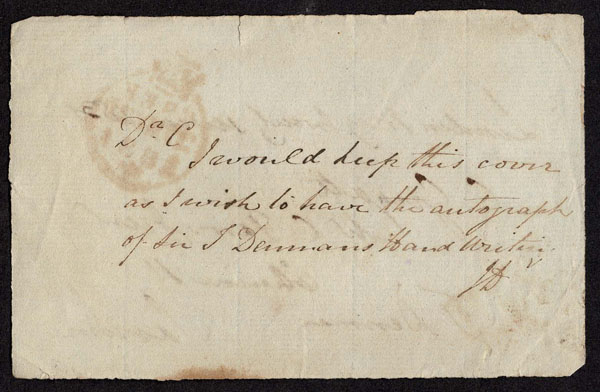 Dr C
I would keep this cover
as I wish to have the autograph
of Sir T Denmans Hand Writing.